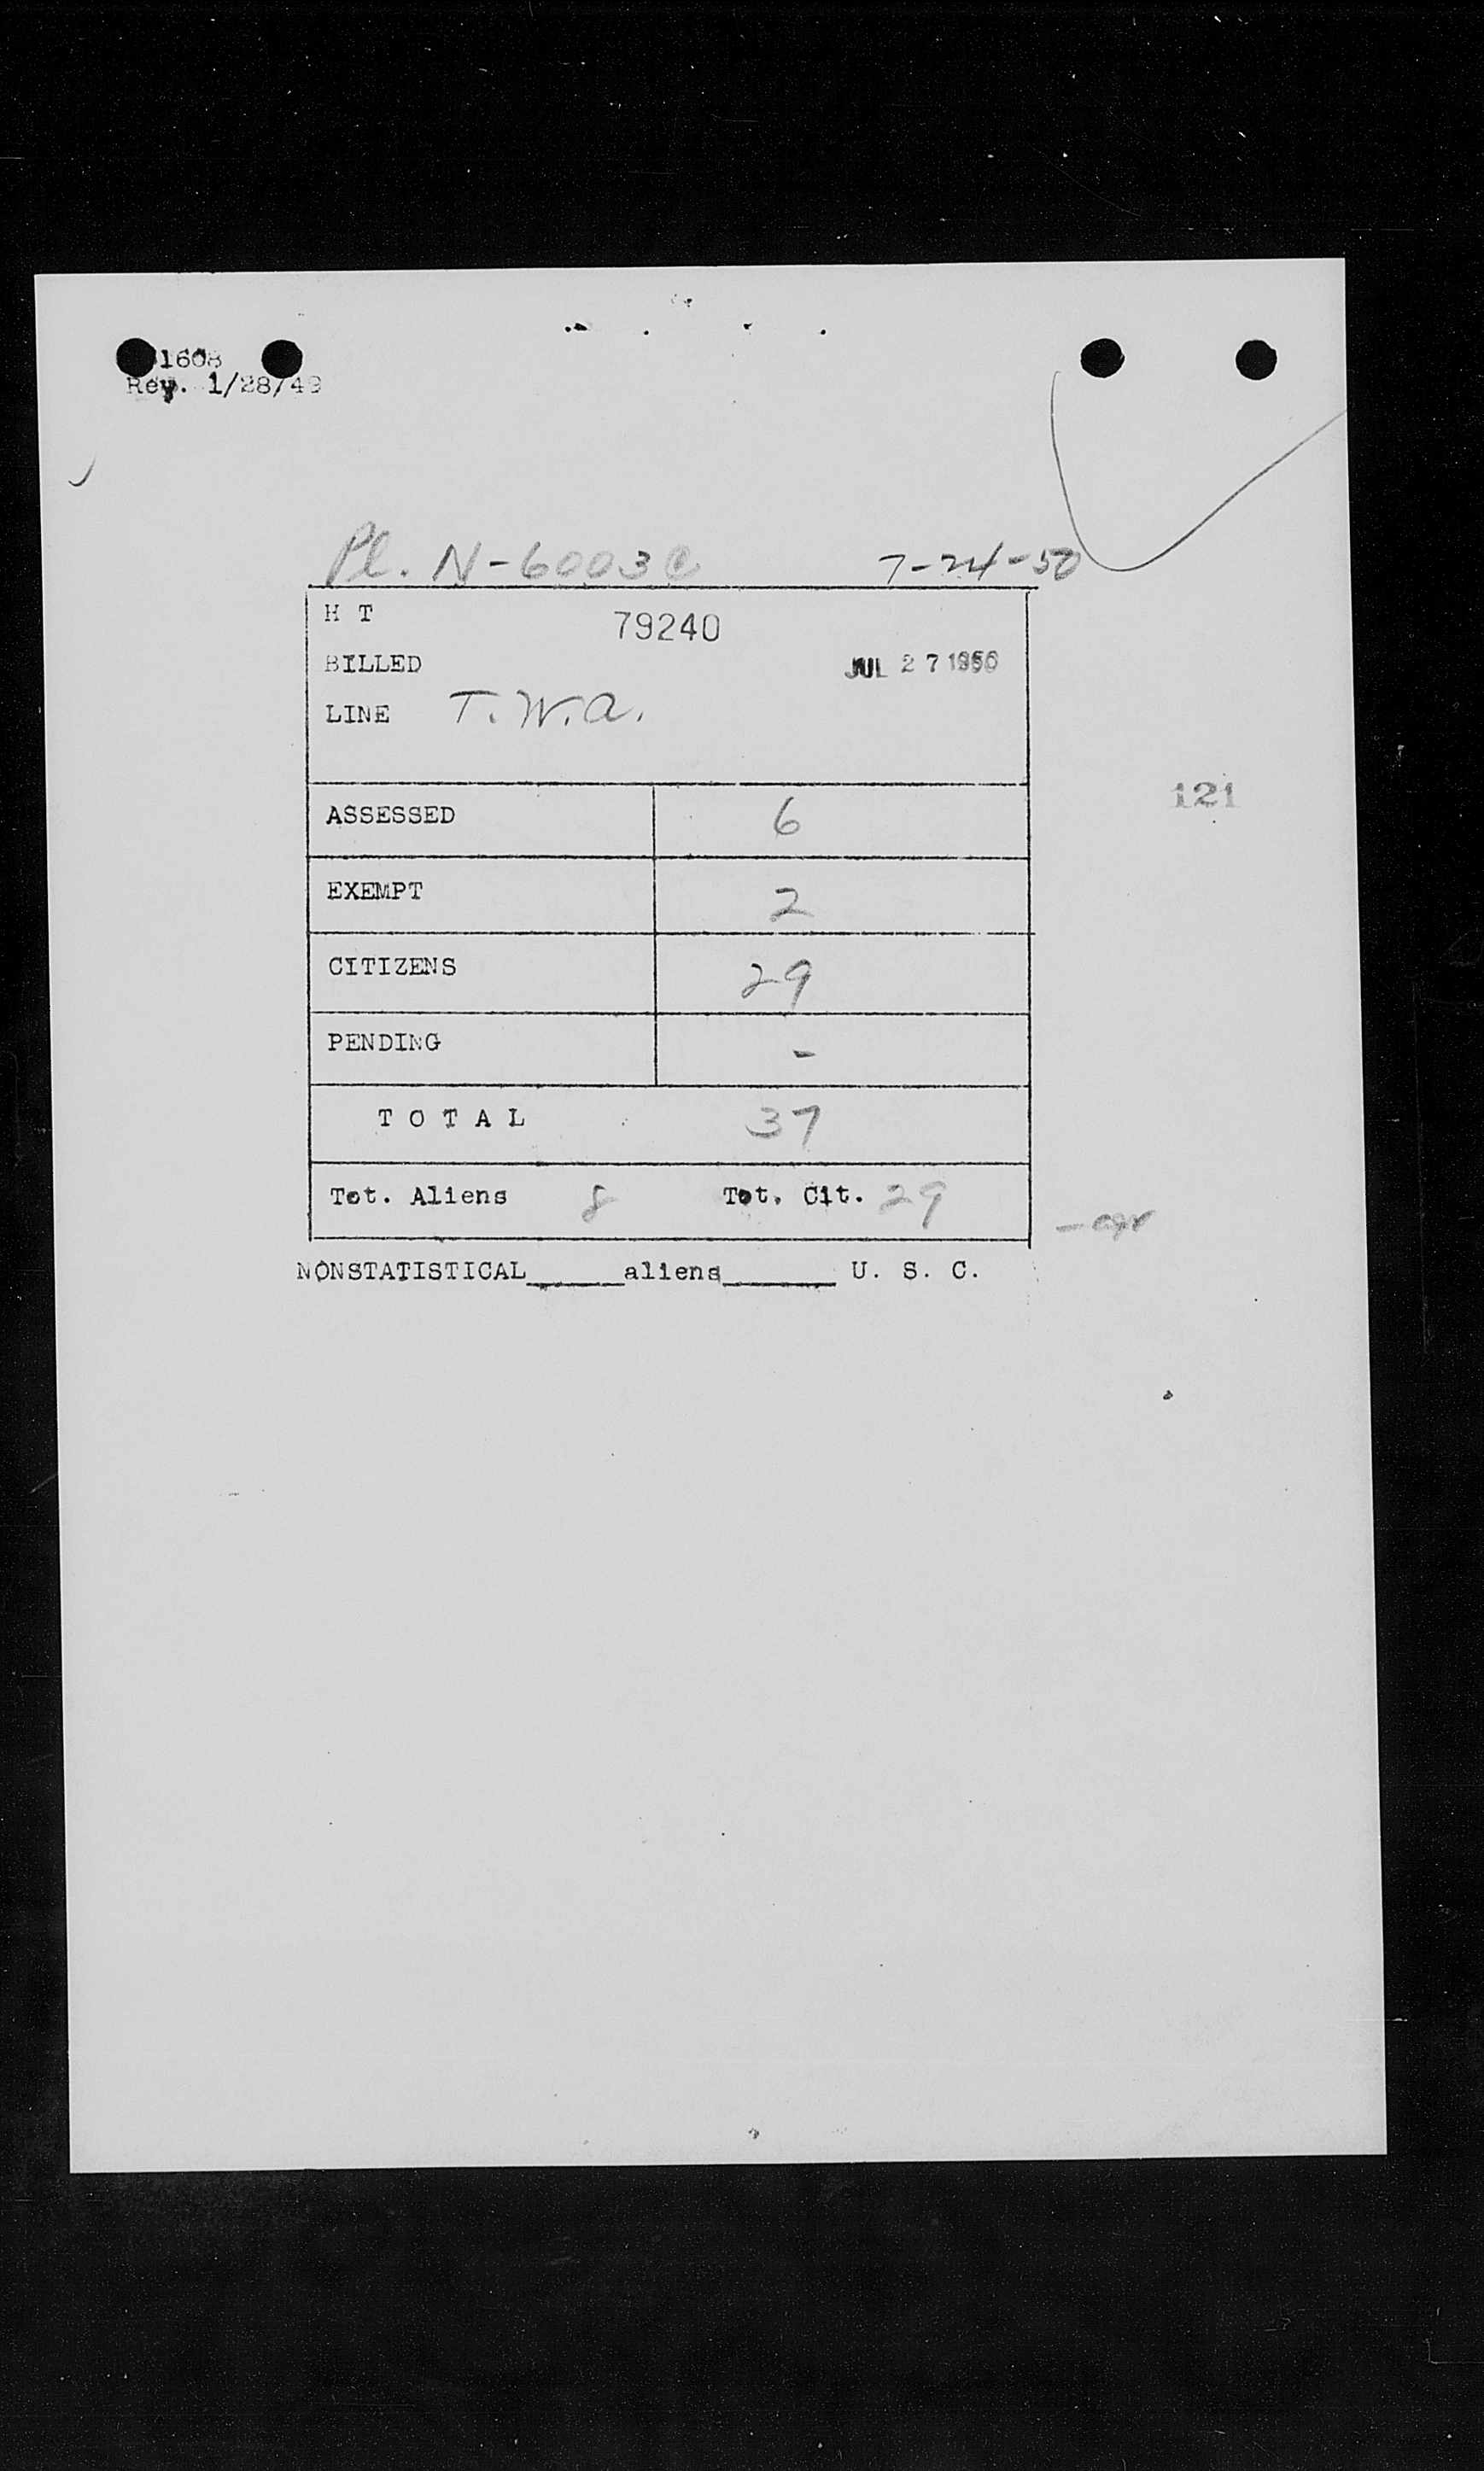 1608
Rev. 1/28/49
Pl. N-6003C 7-24-50
H T 79240
BILLED JUL 27 1950
LINE T.W.A.
121
ASSESSED 6
EXEMPT 2
CITIZENS 29
PENDING -
T O T A L 37
Tot. Aliens 8 Tot. Cit. 29
NONSTATISTICAL_____aliens______ U. S. C.